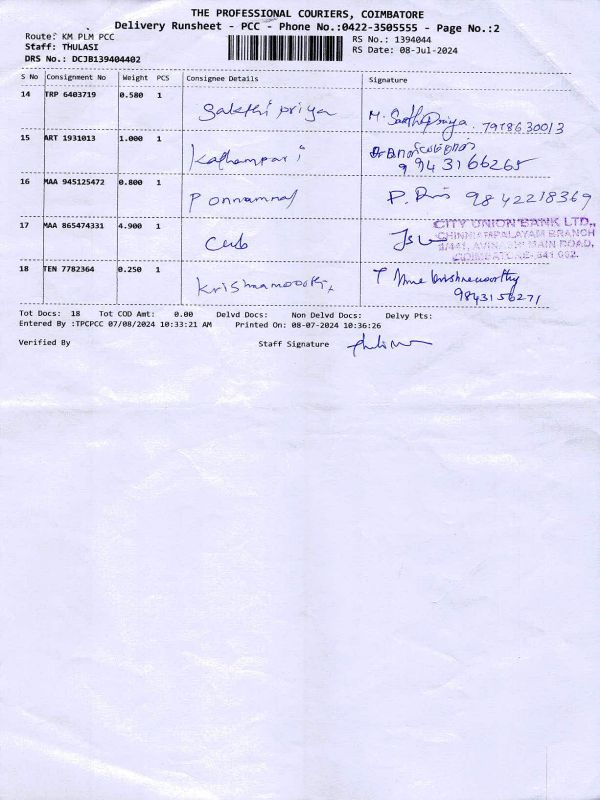 THE PROFESSIONAL COURIERS, COIMBATORE
Delivery Runsheet - PCC - Phone No.:0422-3505555 - Page No.:2
Route: KM PLM PCC
RS No.: 1394044
Staff: THULASI
RS Date: 08-Jul-2024
DRS No.: DCJB139404402
S No Consignment No Weight PCS Consignee Details Signature
14 TRP 6403719 0.580 1 Sakthi priya M. Sakthipriya 7978630013
15 ART 1931013 1.000 1 Kathampari 9943166265
16 MAA 945125472 0.800 1 Ponnammal 9842218369
17 MAA 865474331 4.900 1 Cub
CITY UNION BANK LTD.,
CHINNIAMPALAYAM BRANCH
AVINASHI MAIN ROAD,
COIMBATORE-641 062.
18 TEN 7782364 0.250 1 Krishnamoorthi
9843156271
Tot Docs: 18 Tot COD Amt: 0.00 Delvd Docs: Non Delvd Docs: Delvy Pts:
Entered By :TPCPCC 07/08/2024 10:33:21 AM Printed On: 08-07-2024 10:36:26
Verified By Staff Signature